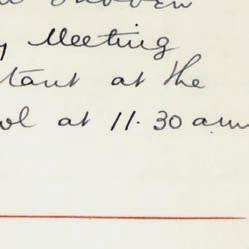 y Meeting
tant at the
ol at 11.30 am